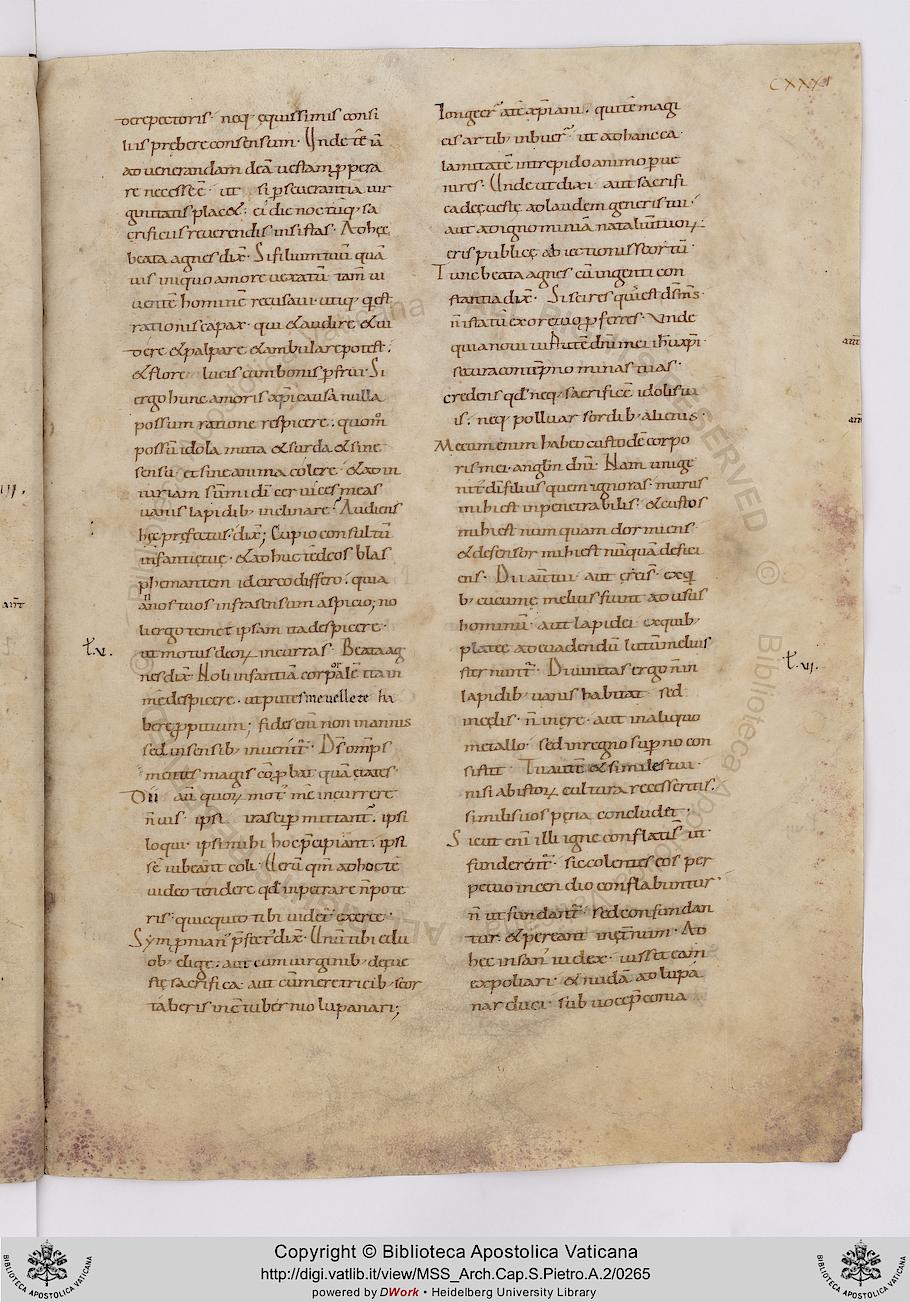 CXXXI
decreptoris · neq; equissimis consi
liis prebere consensum · Unde te iā
ad uenerandam deā uestam ppera
re necesse ē · ut si pseuerantia uir
ginitatis placet · ei die noctuq; sa
crificiis reuerendis insistas · Ad hęc
beata agnes dix̄ · Si filium tuū quā
uis iniquo amore uexatū · tam ui
uentē hominē recusaui · utiq; q est
rationis capax · qui & audire & ui
dere & palpare & ambulare potest ·
& flore lucis cum bonis pfrui · Si
ergo hunc amoris xpi causa nulla
possum ratione respicere · quom̊
possū idola muta & surda & sine
sensu et sine anima colere · & ad in
iuriam sūmi di ceruices meas
uanis lapidib; inclinare · Audiens
hęc prefectus · dix̄ ; Cupio consultū
infantię tuę · & adhuc te deos blas
phemantem idcirco differo · quia
annos tuos infra sensum aspicio ; no
li ergo temet ipsam ita despicere ·
ut motus deoꝝ incurras · Beata ag
nes dix̄ · Noli infantiā corporalē ita in
me despicere · ut putes me uelle te ha
bere ppitium ; fides enī non in annis
sed in sensib; inuenit̄ · Ds omps
mentes magis coprobat quā ętates ·
Dii aū quoꝝ mot me incurrere
n̄ uis · ipsi irasci pmittant̄ · ipsi
loquī · ipsi mihi hoc pcipiant · ipsi
sē iubeant coli · Uerū qm̄ ad hoc tē
uideo tendere qd inpetrare n̄ pote
ris · quicquid tibi uidet̄ exerce ·
Symp̄nian pfect dix̄ · Unū tibi e du
ob; elige · aut cum uirginib; deę ue
stę sacrifica · aut cū meretricib; scor
taberis in ctubernio lupanari ;
t̄.vi.
longe er̄ a te xpiani · qui tē magi
cis artib; inbuer̄ · ut ad hanc ca
lamitatē intrepido animo pue
nires · Unde ut dixi · aut sacrifi
ca deę uestę ad laudem generis tui ·
aut ad ignominiā nataliū tuoꝝ
eris publicę abiectionis scortū ·
Tunc beata agnes cū ingenti con
stantia dix̄ · Si scires qui est ds ms ·
n̄ ista ex ore tuo pferres · Unde
quia noui uirtutē dni mei ihu xpi ·
secura contēpno minas tuas ·
credens qd neq; sacrificē idolis tu
is · neq; polluar sordib; alienis ·
Mecum enim habeo custodē corpo
ris mei · anglm dni · Nam unige
nit̄ di filius quem ignoras · murus
mihi est inpenetrabilis · & custos
mihi est numquam dormiens ·
& defensor mihi est nūquā defici
ens · Dii aū tui aut ęrei s̄ · ex q
b; cucumę melius fiunt ad usus
hominū · aut lapidei ex quib;
plateę ad euadendū lutū melius
sternunt̄ · Diuinitas ergo n̄ in
lapidib; uanis habitat sed
in celis · n̄ in ere aut in aliquo
metallo · sed in regno supno con
sistit Tu autē & similes tui
nisi ab istoꝝ cultura recesseritis ·
similis uos pena concludet ·
Sicut enī illi igne conflati s̄ ut
funderent̄ · sic colentes eos per
petuo incendio conflabuntur ·
n̄ ut fundant̄ sed confundan
tur · & pereant in ęt̄num · Ad
hęc insan iudex · iussit eam
expoliari · & nudā ad lupa
nar duci · sub uoce pconia
t̄.vi.
Copyright © Biblioteca Apostolica Vaticana
http://digi.vatlib.it/view/MSS_Arch.Cap.S.Pietro.A.2/0265
powered by DWork • Heidelberg University Library
BIBLIOTECA APOSTOLICA VATICANA
BIBLIOTECA APOSTOLICA VATICANA